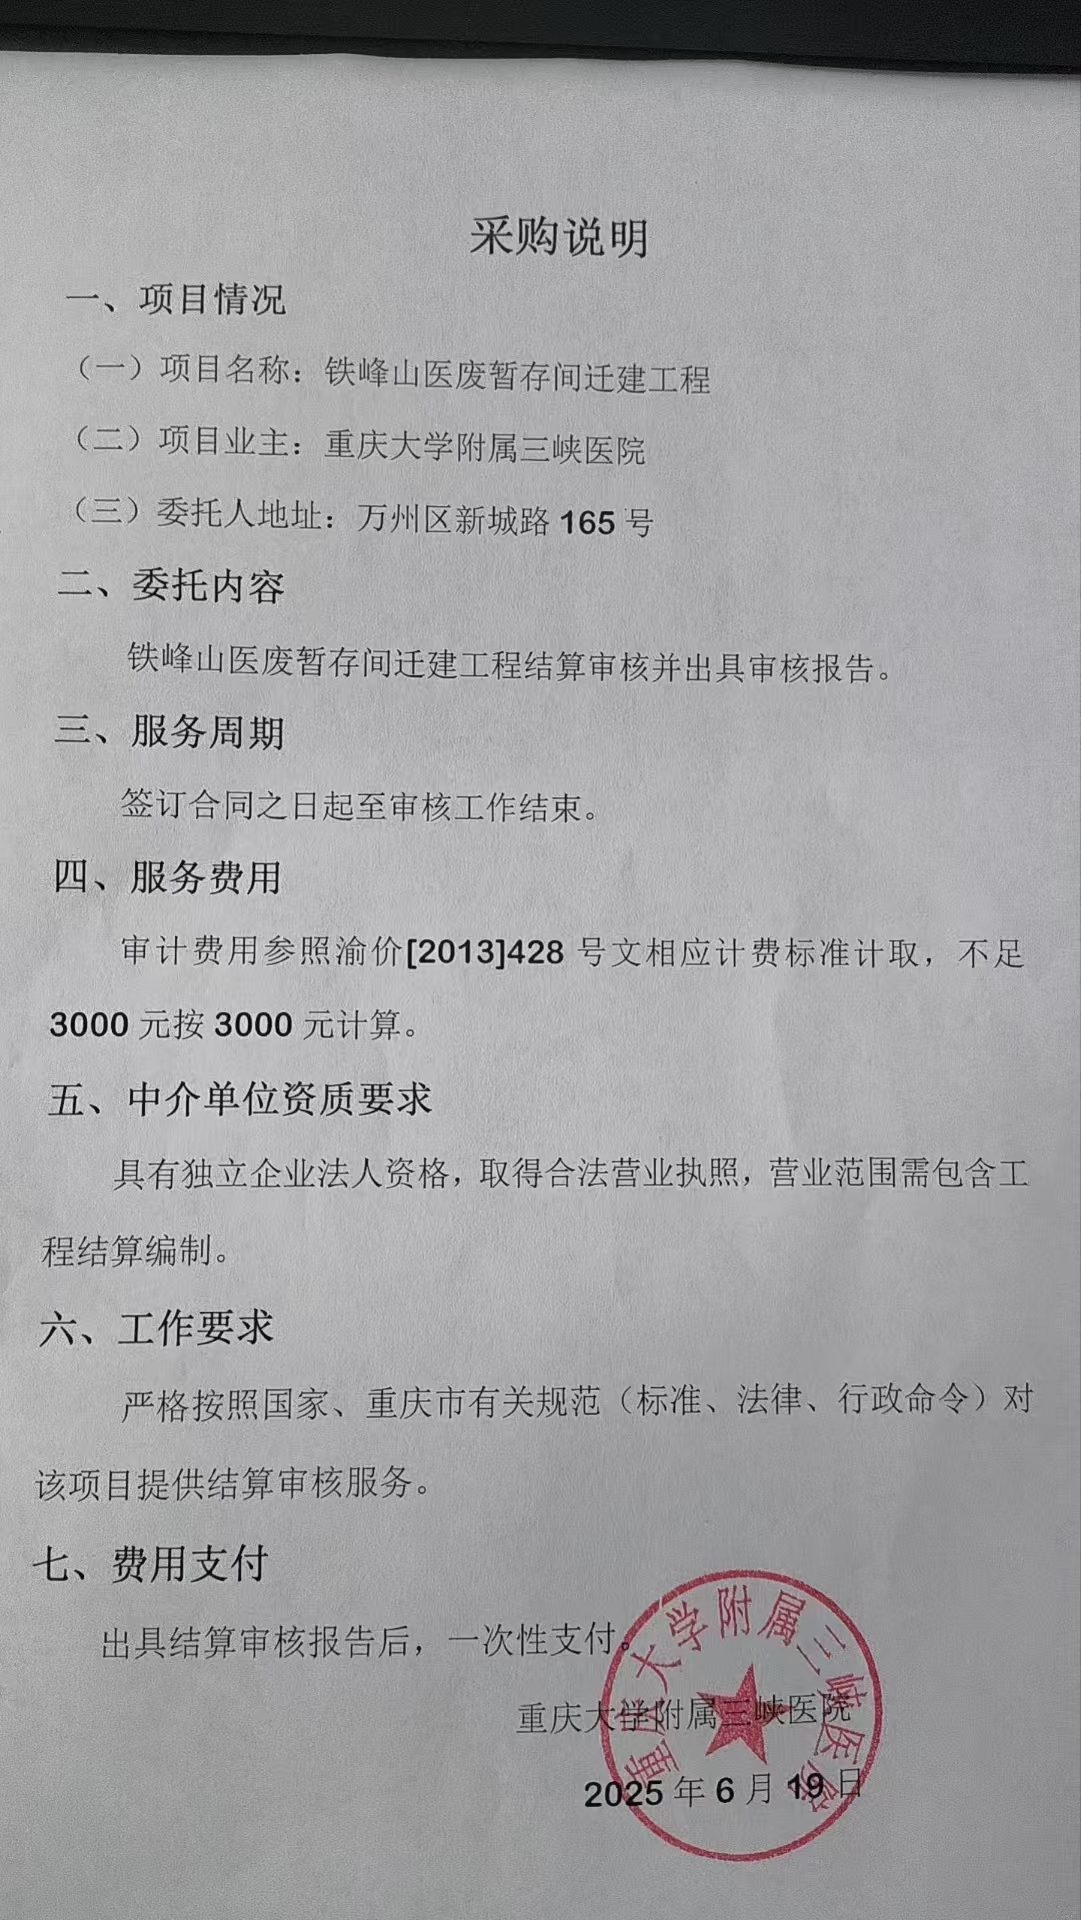 采购说明
一、项目情况
（一）项目名称：铁峰山医废暂存间迁建工程
（二）项目业主：重庆大学附属三峡医院
（三）委托人地址：万州区新城路 165 号
二、委托内容
铁峰山医废暂存间迁建工程结算审核并出具审核报告。
三、服务周期
签订合同之日起至审核工作结束。
四、服务费用
审计费用参照渝价[2013]428 号文相应计费标准计取，不足
3000 元按 3000 元计算。
五、中介单位资质要求
具有独立企业法人资格，取得合法营业执照，营业范围需包含工
程结算编制。
六、工作要求
严格按照国家、重庆市有关规范（标准、法律、行政命令）对
该项目提供结算审核服务。
七、费用支付
出具结算审核报告后，一次性支付。
重庆大学附属三峡医院
2025 年 6 月 19 日
重庆大学附属三峡医院